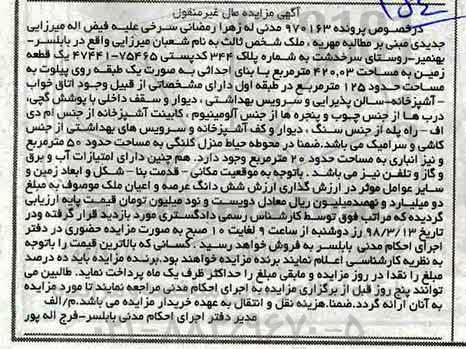 آگهی مزایده مال غیرمنقول
درخصوص پرونده ۹۷۰۱۶۳ مدنی له زهرا رمضانی سرخی علیه فیض اله میرزایی
جدیدی مبنی بر مطالبه مهریه ، ملک شخص ثالث به نام شعبان میرزایی واقع در بابلسر-
بهنمیر-روستای سرخدشت به شماره پلاک ۳۴۴ کدپستی ۷۵۴۶۵-۴۷۴۴۱ یک قطعه
زمین به مساحت ۴۲۰,۰۳ مترمربع با بنای احداثی به صورت یک طبقه روی پیلوت به
مساحت حدود ۱۲۵ مترمربع در طبقه اول دارای مشخصاتی از قبیل وجود اتاق خواب
- آشپزخانه-سالن پذیرایی و سرویس بهداشتی ، دیوار و سقف داخلی با پوشش گچی،
درب ها از جنس چوب و پنجره ها از جنس آلومینیوم ، کابینت آشپزخانه از جنس ام دی
اف - راه پله از جنس سنگ ، دیوار و کف آشپزخانه و سرویس های بهداشتی از جنس
کاشی و سرامیک می باشد.ضمنا در محوطه حیاط منزل کلنگی به مساحت حدود ۵۰ مترمربع
و نیز انباری به مساحت حدود ۲۰ مترمربع وجود دارد. هم چنین دارای امتیازات آب و برق
و گاز و تلفن نیز می باشد . باتوجه به موقعیت مکانی - قدمت بنا - شکل و ابعاد زمین و
سایر عوامل موثر در ارزش گذاری ارزش شش دانگ عرصه و اعیان ملک موصوف به مبلغ
دو میلیارد و نهصدمیلیون ریال معادل دویست و نود میلیون تومان قیمت پایه ارزیابی
گردیده که مراتب فوق توسط کارشناس رسمی دادگستری مورد بازدید قرار گرفته ودر
تاریخ ۹۸/۳/۱۳ رز دوشنبه از ساعت ۹ لغایت ۱۰ صبح به صورت مزایده حضوری در دفتر
اجرای احکام مدنی بابلسر به فروش خواهد رسید . کسانی که بالاترین قیمت را باتوجه
به نظریه کارشناسی اعلام نمایند برنده مزایده خواهند بود.برنده مزایده باید ده درصد
مبلغ را نقدا در روز مزایده و مابقی مبلغ را حداکثر ظرف یک ماه پرداخت نماید. طالبین می
توانند پنج روز قبل از برگزاری مزایده به اجرای احکام مدنی مراجعه نمایند تا مورد مزایده
به آنان ارائه گردد.ضمنا.هزینه نقل و انتقال به عهده خریدار مزایده می باشد.م/الف
مدیر دفتر اجرای احکام مدنی بابلسر-فرج اله پور